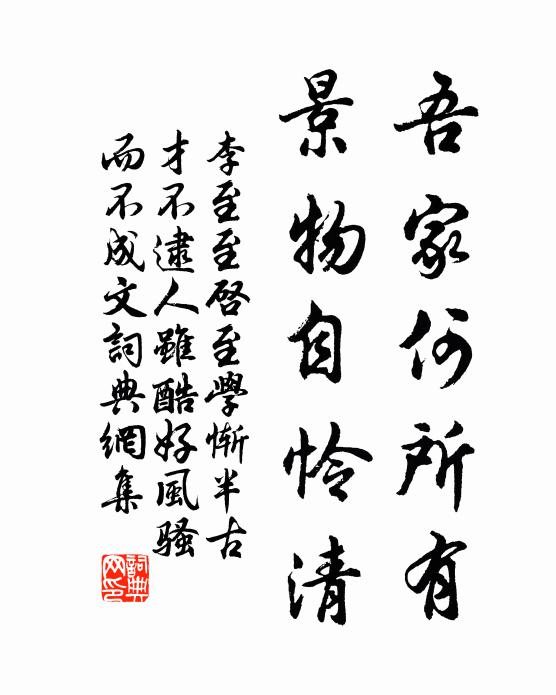 吾家何所有
景物自怜清
李至至啓至學慚半古
才不逮人雖酷好風騷
而不成文詞典網集
詞典网印